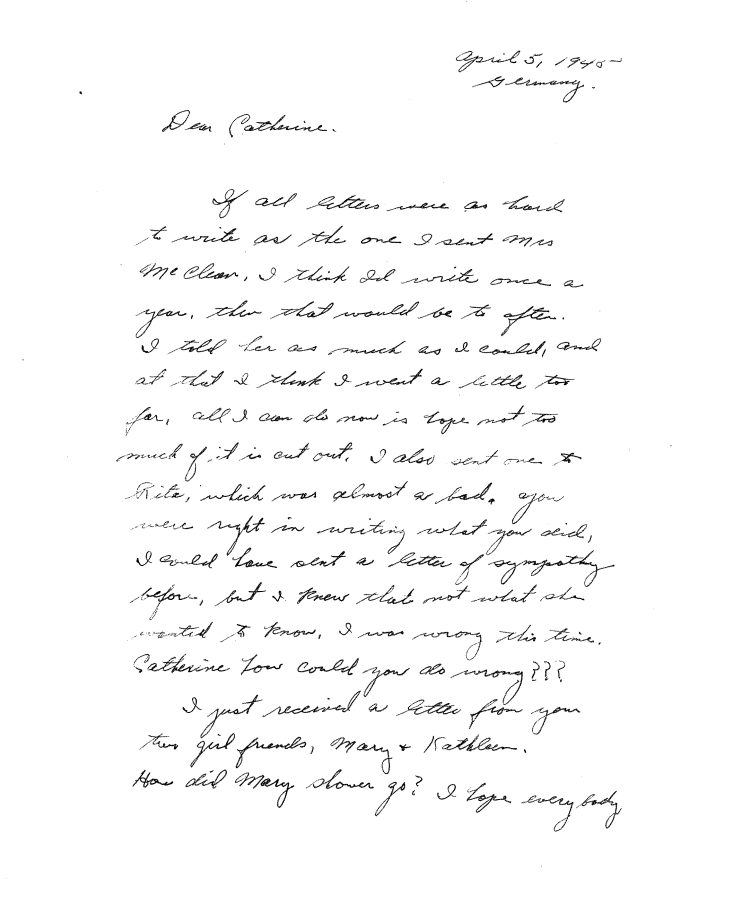 April 5, 1945
Germany.
Dear Catherine.
If all letters were as hard
to write as the one I sent Mrs
McClean, I think Id write once a
year, then that would be to often.
I told her as much as I could, and
at that I think I went a little too
far, all I can do now is hope not too
much of it is cut out. I also sent one to
Rita, which was almost as bad. You
were right in writing what you did,
I could have sent a letter of sympathy
before, but I knew that not what she
wanted to know, I was wrong this time.
Catherine how could you do wrong???
I just received a letter from your
two girl friends, Mary + Kathleen.
How did Mary shower go? I hope everybody